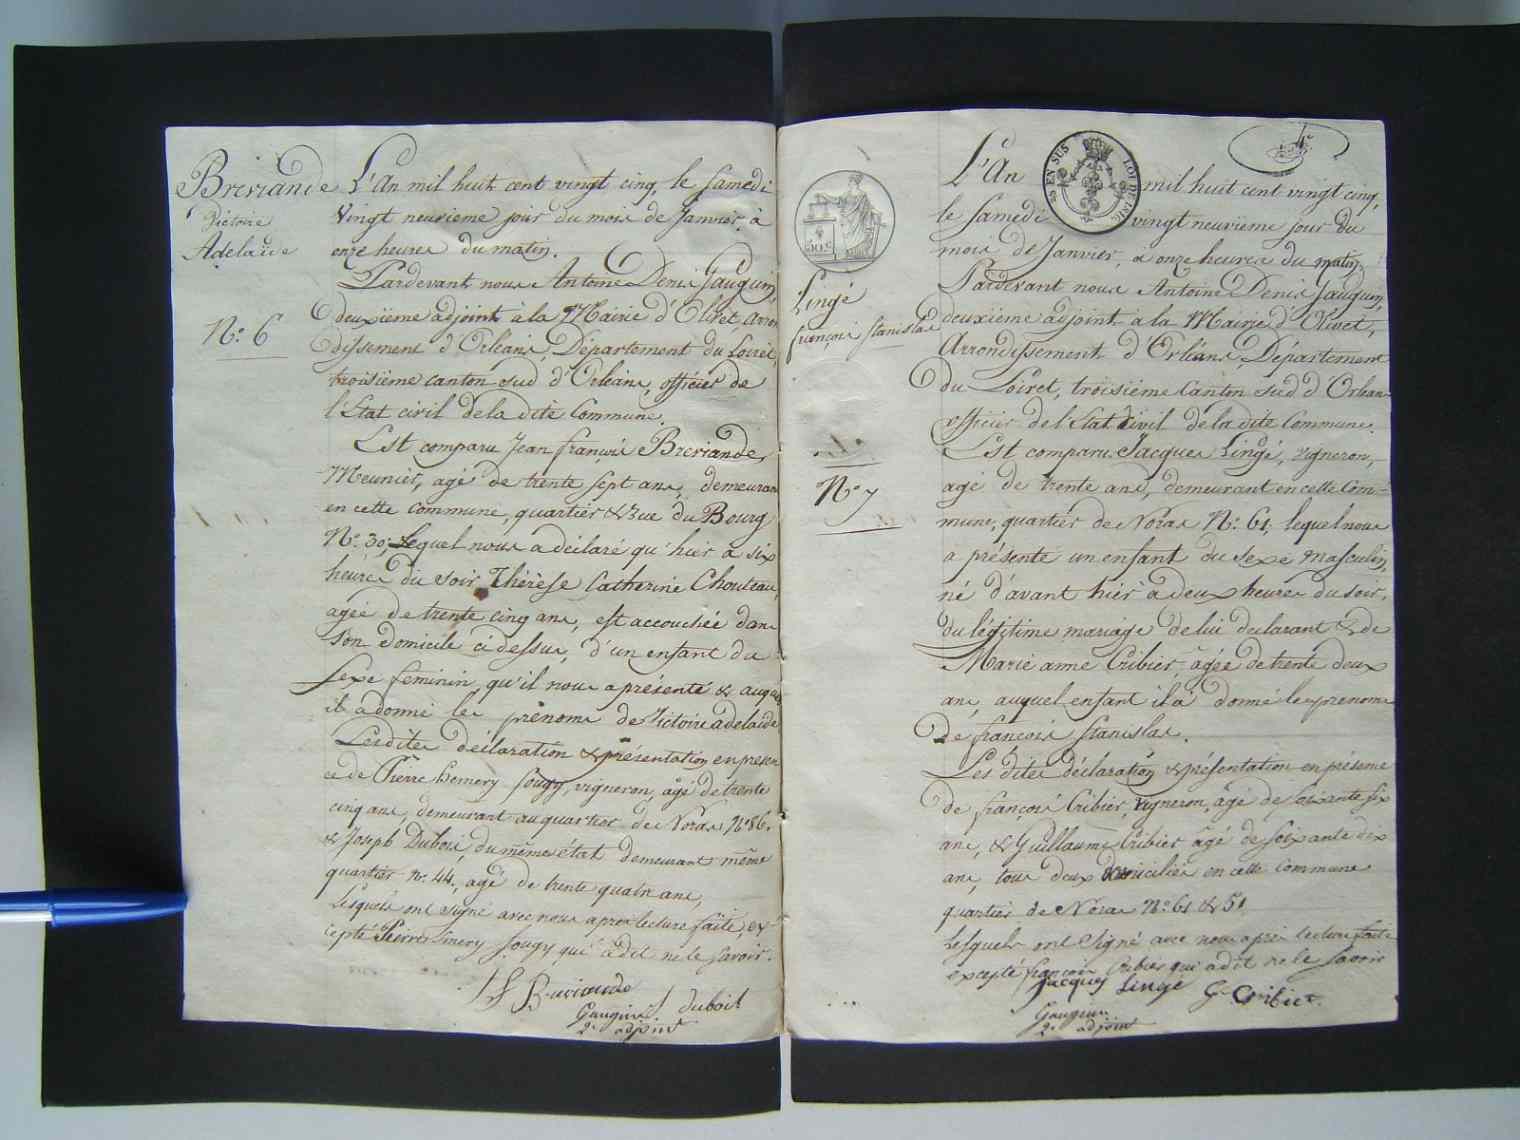 Breviande
Victoire
Adelaïde
N.° 6
L'An mil huit cent vingt cinq, le samedi
vingt neuvieme jour du mois de Janvier, à
onze heures du matin.
Pardevant nous Antoine Denis Gauguin,
deuxième adjoint à la Mairie d'Olivet, Arron
dissement d'Orléans, Département du Loiret,
troisième canton sud d'Orléans, officier de
l'Etat civil de la dite Commune.
Est comparu Jean françois Breviande,
Meunier, agé de trente sept ans, demeurant
en cette commune, quartier & rue du Bourg
N.° 30, Lequel nous a déclaré qu'hier à six
heures du soir Thérèse Catherine Chouteau,
agée de trente cinq ans, est accouchée dans
son domicile ci dessus, d'un enfant du
sexe feminin, qu'il nous a présenté & auquel
il a donné les prénoms de Victoire adelaide
Lesdites déclaration & présentation en presen
ce de Pierre hemery Sougy, vigneron, âgé de trente
cinq ans, demeurant au quartier de Noras N.° 86.
& Joseph Dubois, du même état demeurant même
quartier n.° 44., agé de trente quatre ans,
Lesquels ont signé avec nous apres lecture faite, ex-
cepté Pierre Sougy qui a dit ne le savoir.
J f Breviande
Gauguin J duboit
2.e adjoint
4
SUS EN SUS
LOI DE
10 c
Lingé
françois Stanislas
N.° 7
L'An mil huit cent vingt cinq,
le samedi vingt neuvième jour du
mois de Janvier, à onze heures du matin,
Pardevant nous Antoine Denis Gauguin,
deuxième adjoint à la Mairie d'Olivet,
Arrondissement d'Orléans, Département
du Loiret, troisième Canton sud d'Orléans
officier de l'Etat Civil de la dite Commune.
Est comparu Jacques Lingé, vigneron,
agé de trente ans, demeurant en cette Com-
mune, quartier de Noras N.° 61, lequel nous
a présenté un enfant du sexe masculin,
né d'avant hier à deux heures du soir,
du légitime mariage de lui declarant & de
Marie anne Cribier, âgée de trente deux
ans, auquel enfant il a donné les prenoms
de françois Stanislas.
Les dites déclaration & présentation en présence
de françois Cribier, vigneron, âgé de soixante six
ans, & Guillaume Cribier âgé de soixante dix
ans, tous deux domiciliés en cette commune
quartier de Noras N.° 61 & 51
Lesquels ont signé avec nous après lecture faite
excepté françois Cribier qui a dit ne le savoir
Jacques Lingé G Cribier.
Gauguin
2.e adjoint